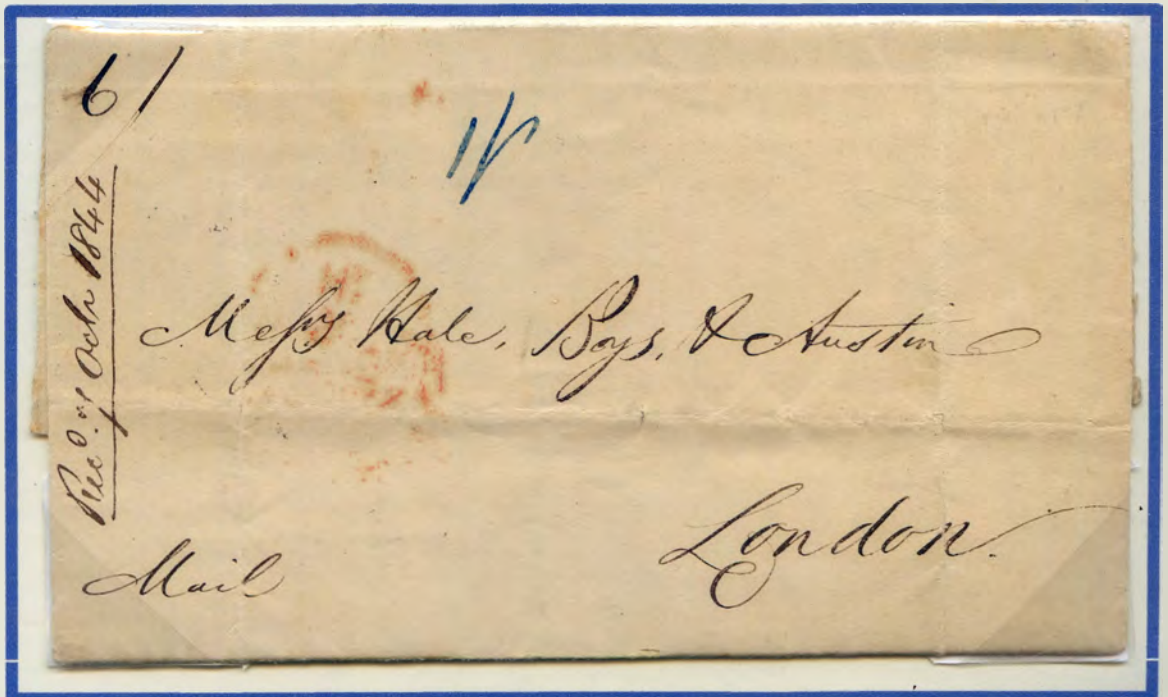 6/
1/
Recd. 7 Octr 1844
Messrs Hale, Boys, & Austin
London.
Mail